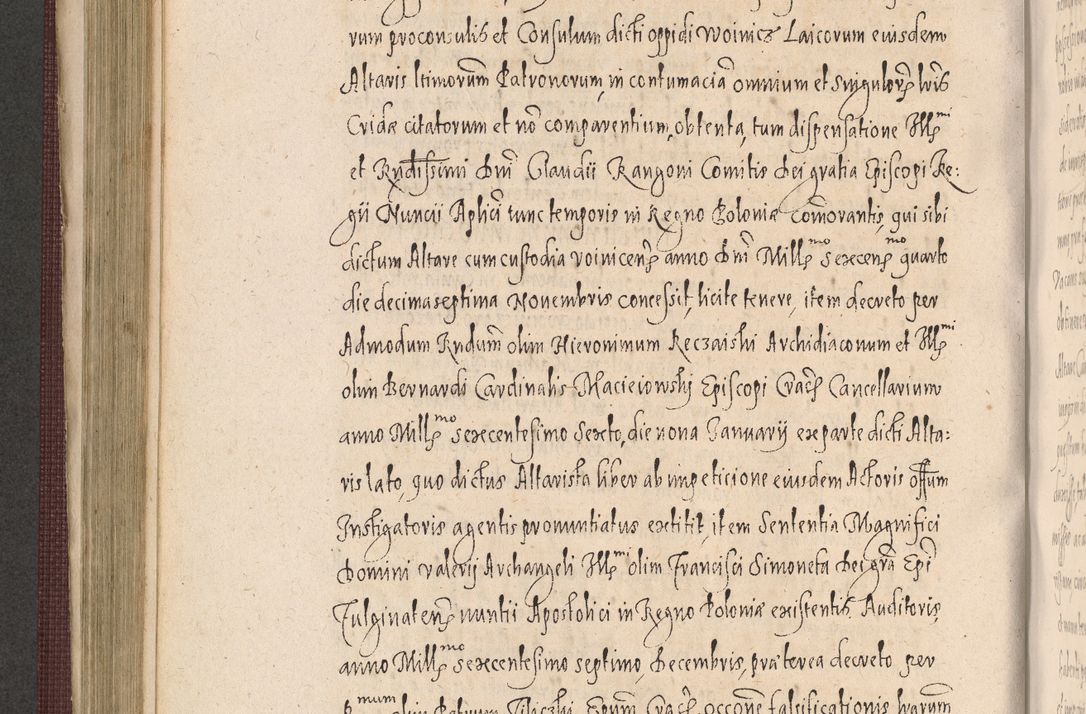 rum proconsulis et Consulum dicti oppidi Woinicz Laicorum eiusdem
Altaris ltimorum̃ Patronorum, in contumaciã omnium et singulorꝫ lrĩs
Cridæ citatorum et nõ comparentium, obtenta, tum dispensatione Illꝫ mi
et Rndissimi Dnĩ Claudii Rangoni Comitis Dei gratia Episcopi Re:
gii Nuncii Aplici tunc temporis in Regno Poloniæ com̃orantis, qui sibi
dictum Altare cum custodia Voinicenꝫ anno Dnĩ Millꝫ mo sexcenꝫ mo quarto
die decima septima Nouembris concessit, licite tenere, item decreto per
Admodum Rndum̃ olim Hieronimum Reczaiski Archidiaconum et Illꝫ mi
olim Bernardi Cardinalis Macieiowskÿ Episcopi Cracꝫ Cancellarium
anno Millꝫ mo sexcentesimo Sexto, die nona Januarÿ ex parte dicti Alta:
ris lato, quo dictus Altarista liber ab impeticione eiusdem Actoris off̃um
Instigatoris agentis pronuntiatus extitit, item Sententia Magnifici
Domini Valerÿ Archangeli Illꝫ mi olim Francisci Simoneta Dei grã Epĩ
Fulginatenꝫ nuntii Apostolici in Regno Poloniæ existentis Auditoris
anno Millꝫ mo sexcentesimo septimo, Decembris, præterea decreto per
olim Petrum Tiliczki Epum̃ Cracꝫ occone falsificationis harum